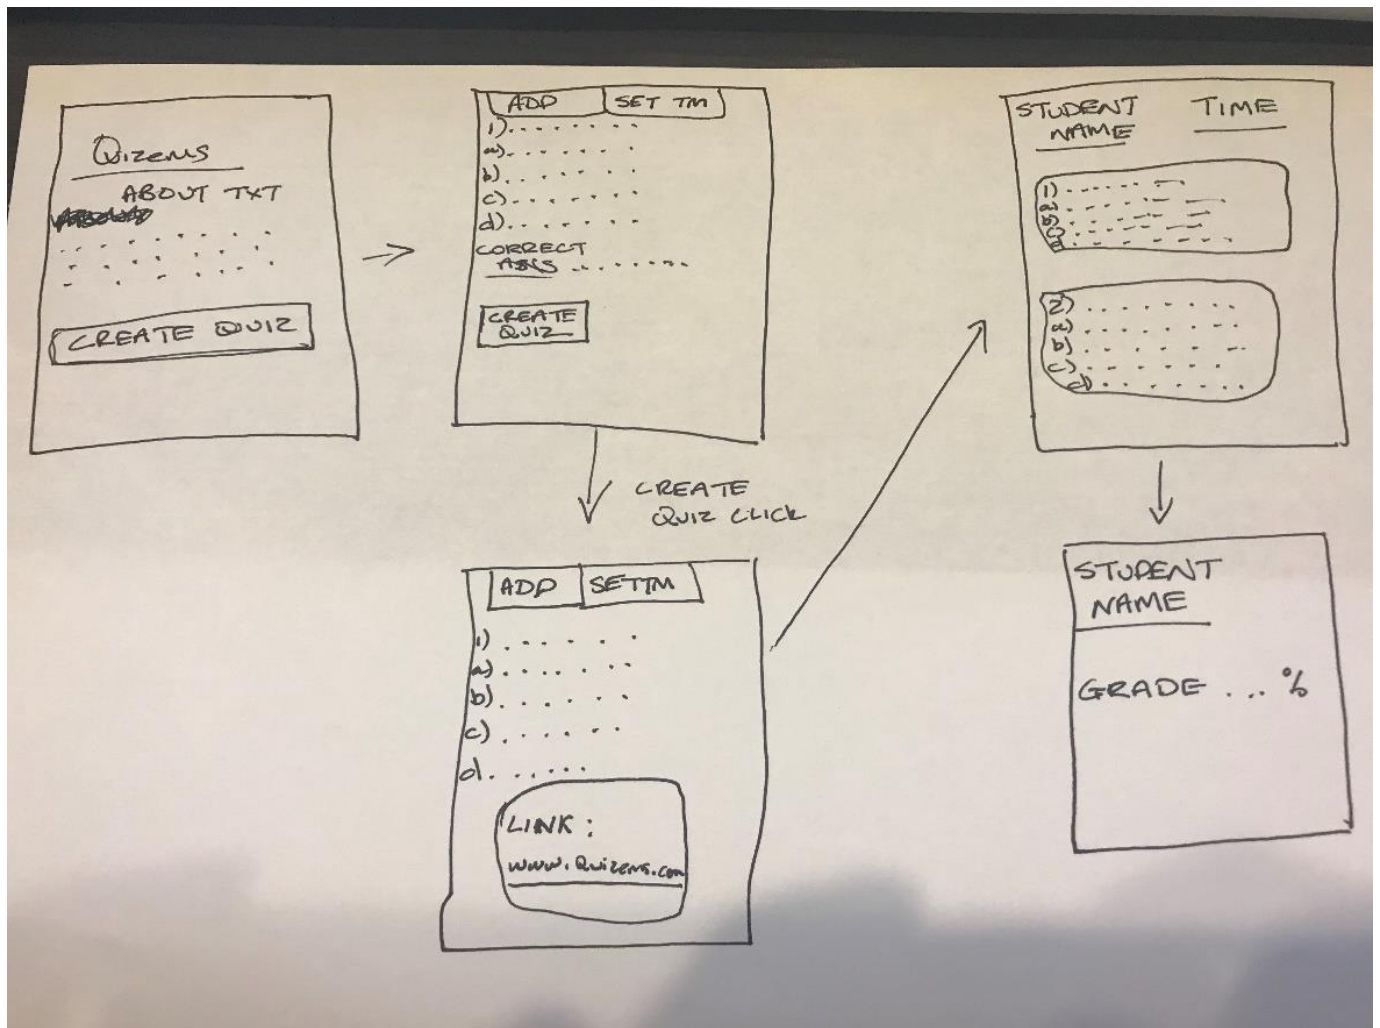 Quizems
ABOUT TXT
CREATE QUIZ
ADD SET TM
1)
a)
b)
c)
d)
CORRECT
ANS
CREATE
QUIZ
CREATE
QUIZ CLICK
ADD SETTM
1)
a)
b)
c)
d.
LINK :
www.Quizems.com
STUDENT
NAME
TIME
1)
a)
b)
c)
d)
2)
a)
b)
c)
d)
STUDENT
NAME
GRADE ... %